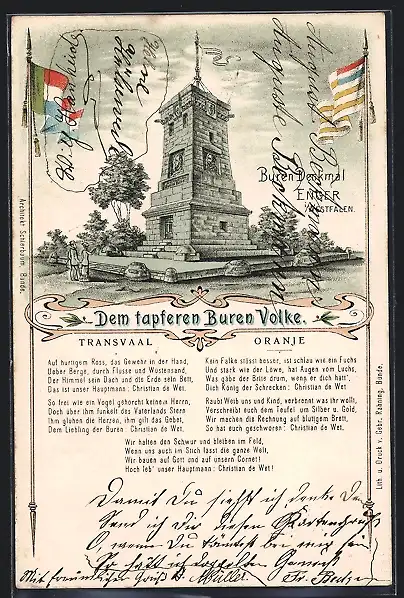 Buren Denkmal
ENGER
WESTFALEN.
Architekt Schierbaum. Bünde.
Dem tapferen Buren Volke.
TRANSVAAL
ORANJE
Auf hurtigem Ross, das Gewehr in der Hand,
Ueber Berge, durch Flüsse und Wüstensand,
Der Himmel sein Dach und die Erde sein Bett,
Das ist unser Hauptmann: Christian de Wet.
So frei wie ein Vogel gehorcht keinem Herrn,
Doch über ihm funkelt des Vaterlands Stern
Ihm glühen die Herzen, ihm gilt das Gebet,
Dem Liebling der Buren: Christian de Wet.
Kein Falke stösst besser, ist schlau wie ein Fuchs
Und stark wie der Löwe, hat Augen vom Luchs,
Was gäbe der Brite drum, wenn er dich hätt',
Dich König der Schrecken: Christian de Wet
Raubt Weib uns und Kind, verbrennt was ihr wollt,
Verschreibt euch dem Teufel um Silber u. Gold,
Wir machen die Rechnung auf blutigem Brett,
So hat euch geschworen: Christian de Wet.
Wir halten den Schwur und bleiben im Feld,
Wenn uns auch im Stich lässt die ganze Welt,
Wir bauen auf Gott und auf unser Cornet!
Hoch leb' unser Hauptmann: Christian de Wet!
Lith. u. Druck v. Gebr. Ranning, Bünde.
Damit Du siehst ich denke Dein
Send ich Dir diesen Kartengruß
O, wenn Du könntest bei mir sein
So hätt ich doppelten Genuß
Mit freundlichem Gruß
Müller